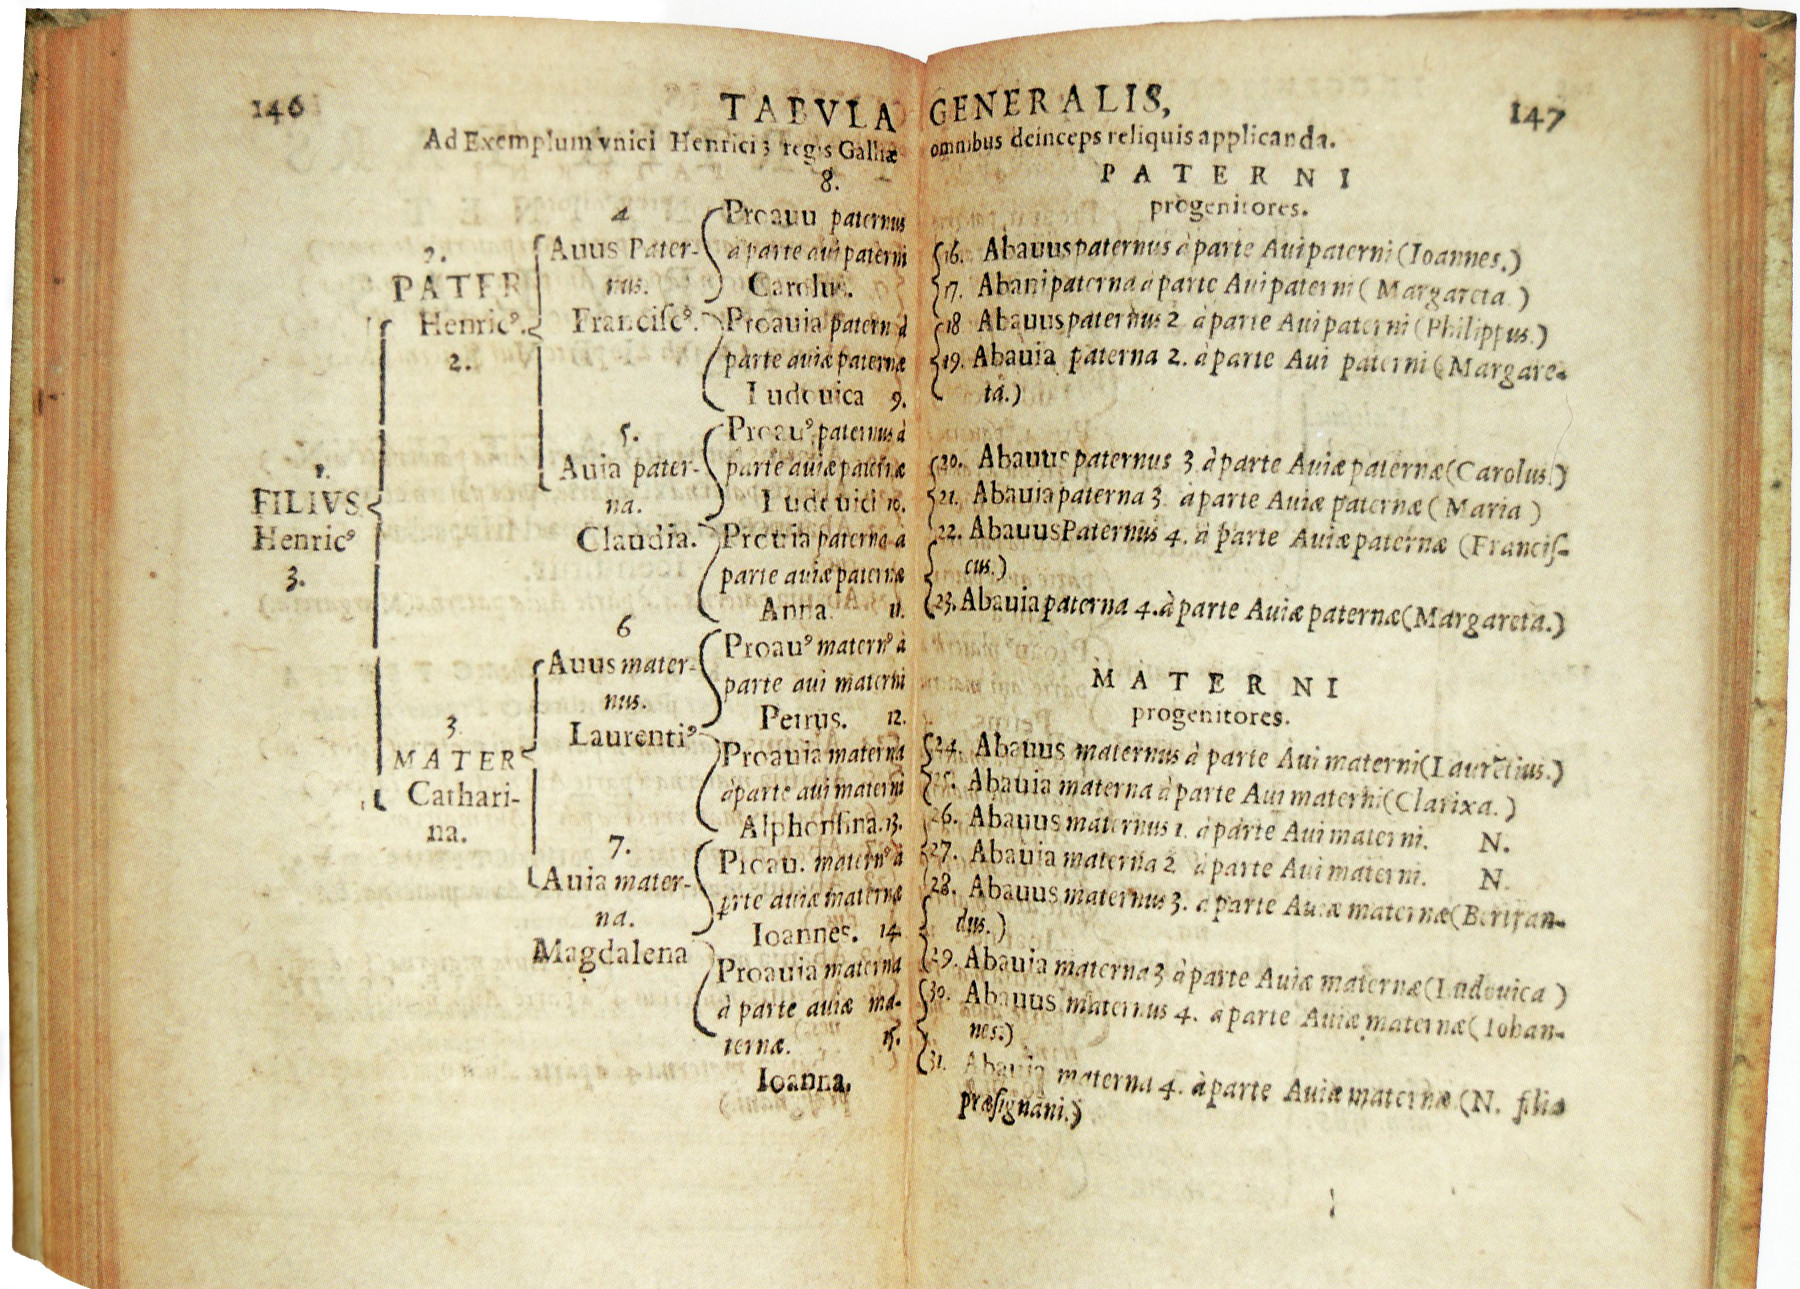 146
TABVLA
Ad Exemplum vnici Henrici 3 regis Galliæ
8.
1.
FILIVS
Henricꝰ
3.
2.
PATER
Henricꝰ.
2.
3.
MATER
Cathari-
na.
4
Auus Pater-
nus.
Franciſcꝰ.
5.
Auia pater-
na.
Claudia.
6
Auus mater-
nus.
Laurentiꝰ
7.
Auia mater-
na.
Magdalena
Proauu paternus
à parte aui paterni
Carolus.
Proauia patern à
parte auiæ paternæ
Ludouica 9.
Proauꝰ paternus à
parte auiæ paternæ
Ludouici 10.
parte auiæ paternæ
Anna. 11.
Proauꝰ maternꝰ à
parte aui materni
Petrus. 12.
Proauia materna
à parte aui materni
Alphonſina. 13.
Proau. maternꝰ à
ꝑrte auiæ maternæ
Ioannes. 14.
Proauia materna
à parte auiæ ma-
ternæ. 15.
Ioanna.
147
GENERALIS,
omnibus deinceps reliquis applicanda.
PATERNI
progenitores.
16. Abauus paternus à parte Aui paterni (Ioannes.)
17. Abani paterna a parte Aui paterni ( Margareta. )
18 Abauus paternus 2 à parte Aui paterni (Philippus.)
19. Abauia paterna 2. à parte Aui paterni (Margare-
ta.)
20. Abauus paternus 3 à parte Auiæ paternæ (Carolus.)
21. Abauia paterna 3 à parte Auiæ paternæ ( Maria )
22. Abauus Paternus 4. à parte Auiæ paternæ (Franciſ-
cus.)
23. Abauia paterna 4. à parte Auiæ paternæ (Margareta.)
MATERNI
progenitores.
24. Abauus maternus à parte Aui materni (Laurẽtius.)
25. Abauia materna à parte Aui materni (Clarixa.)
26. Abauus maternus 1. à parte Aui materni. N.
27. Abauia materna 2 à parte Aui materni. N.
28. Abauus maternus 3. à parte Auiæ maternæ (Bertran-
dus.)
29. Abauia materna 3 à parte Auiæ maternæ (Ludouica )
30. Abauus maternus 4. à parte Auiæ maternæ ( Iohan-
nes.)
31. Abauia materna 4. à parte Auiæ maternæ. (N. filia
præſignani.)